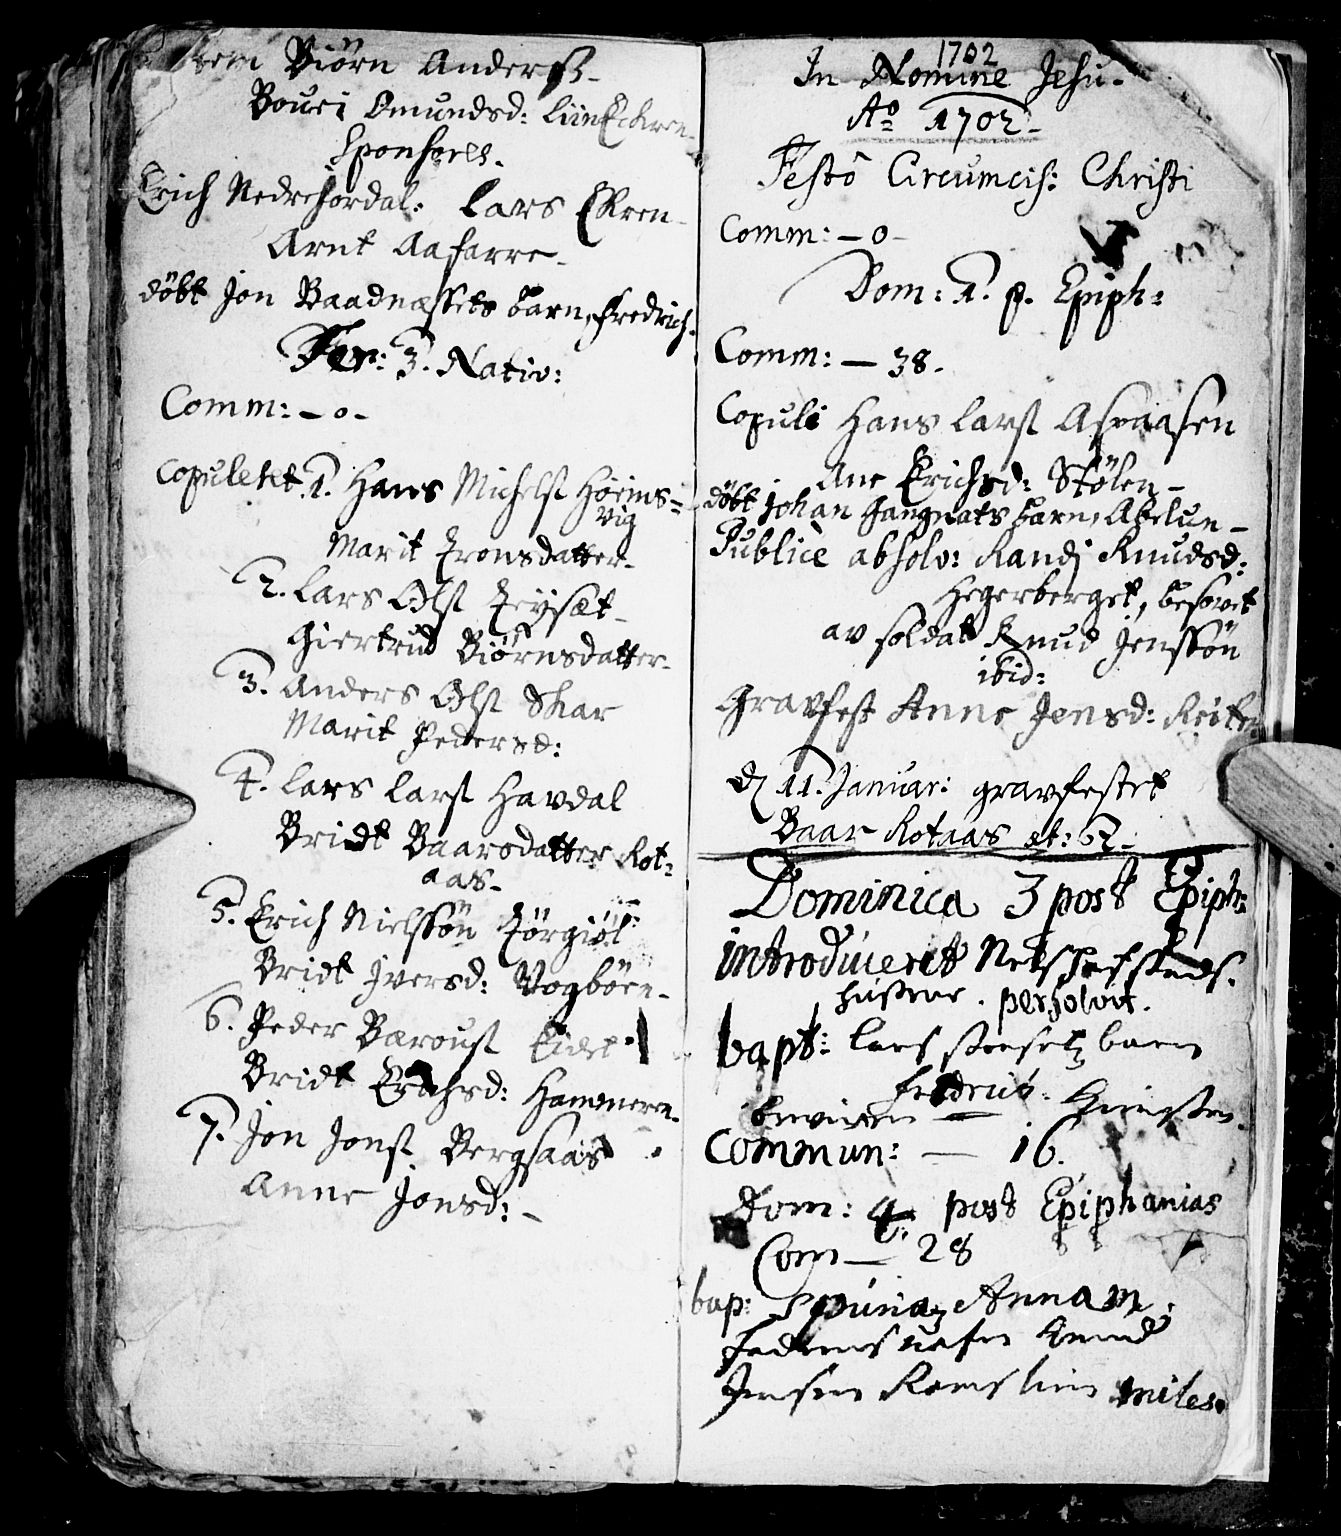 Biørn Anderss-
Bouri Omundsd: Liin Eckren-
Sponsores.
Erich Nedrehordal: Lars Ekren-
Arnt Aafarre-
döbt Jon Baadnæssets barn, Fredrich.
Fer: 3. Nativ:
Comm: - o -
Copuleret 1. Hans Michelss Høeins=
vig
Marit Jronsdatter-
2. Lars Olss
Giertrud Biörnsdatter-
3. Anders Olss Skar
Marit Pedersd:
4. Lars Larss Havdal
Bridt Baarsdatter Rot=
aas-
5. Erich Nielssön
Bridt Jversd: Vogböen-
6. Peder Baarouss Eidet
Bridt Erichsd: Hammeren-
7. Jon Jonss Bergsaas
Anne Jonsd: -
1702
In Nomine Jesu.
Aō 1702-
Festo Circumcis: Christi
Comm: - o -
Dom: 1. p. Epiph:
Comm: - 38.
Copuli Hans Larss Aspaasen
Ane Erichsd: Stölen-
döbt Johan Gangnats barn, Abelun-
Publicè absolv: Randj Knudsd:
Hegerberget, besovet
av soldat Knud Jenssön
ibid:
Gravfest Anne Jensd: Reiten
d 11. Januar: gravfestet
Baar Rotaas æt: 67-
Dominica 3 post Epiph:
introduceret Nels
hustrue. persolvit.
bapt: Lars barn
fredrich.
Commun: — 16.
Dom: 4: post Epiphanias
Com — 28
bap: Spuriam Annam.
Knud
Jensen miles.